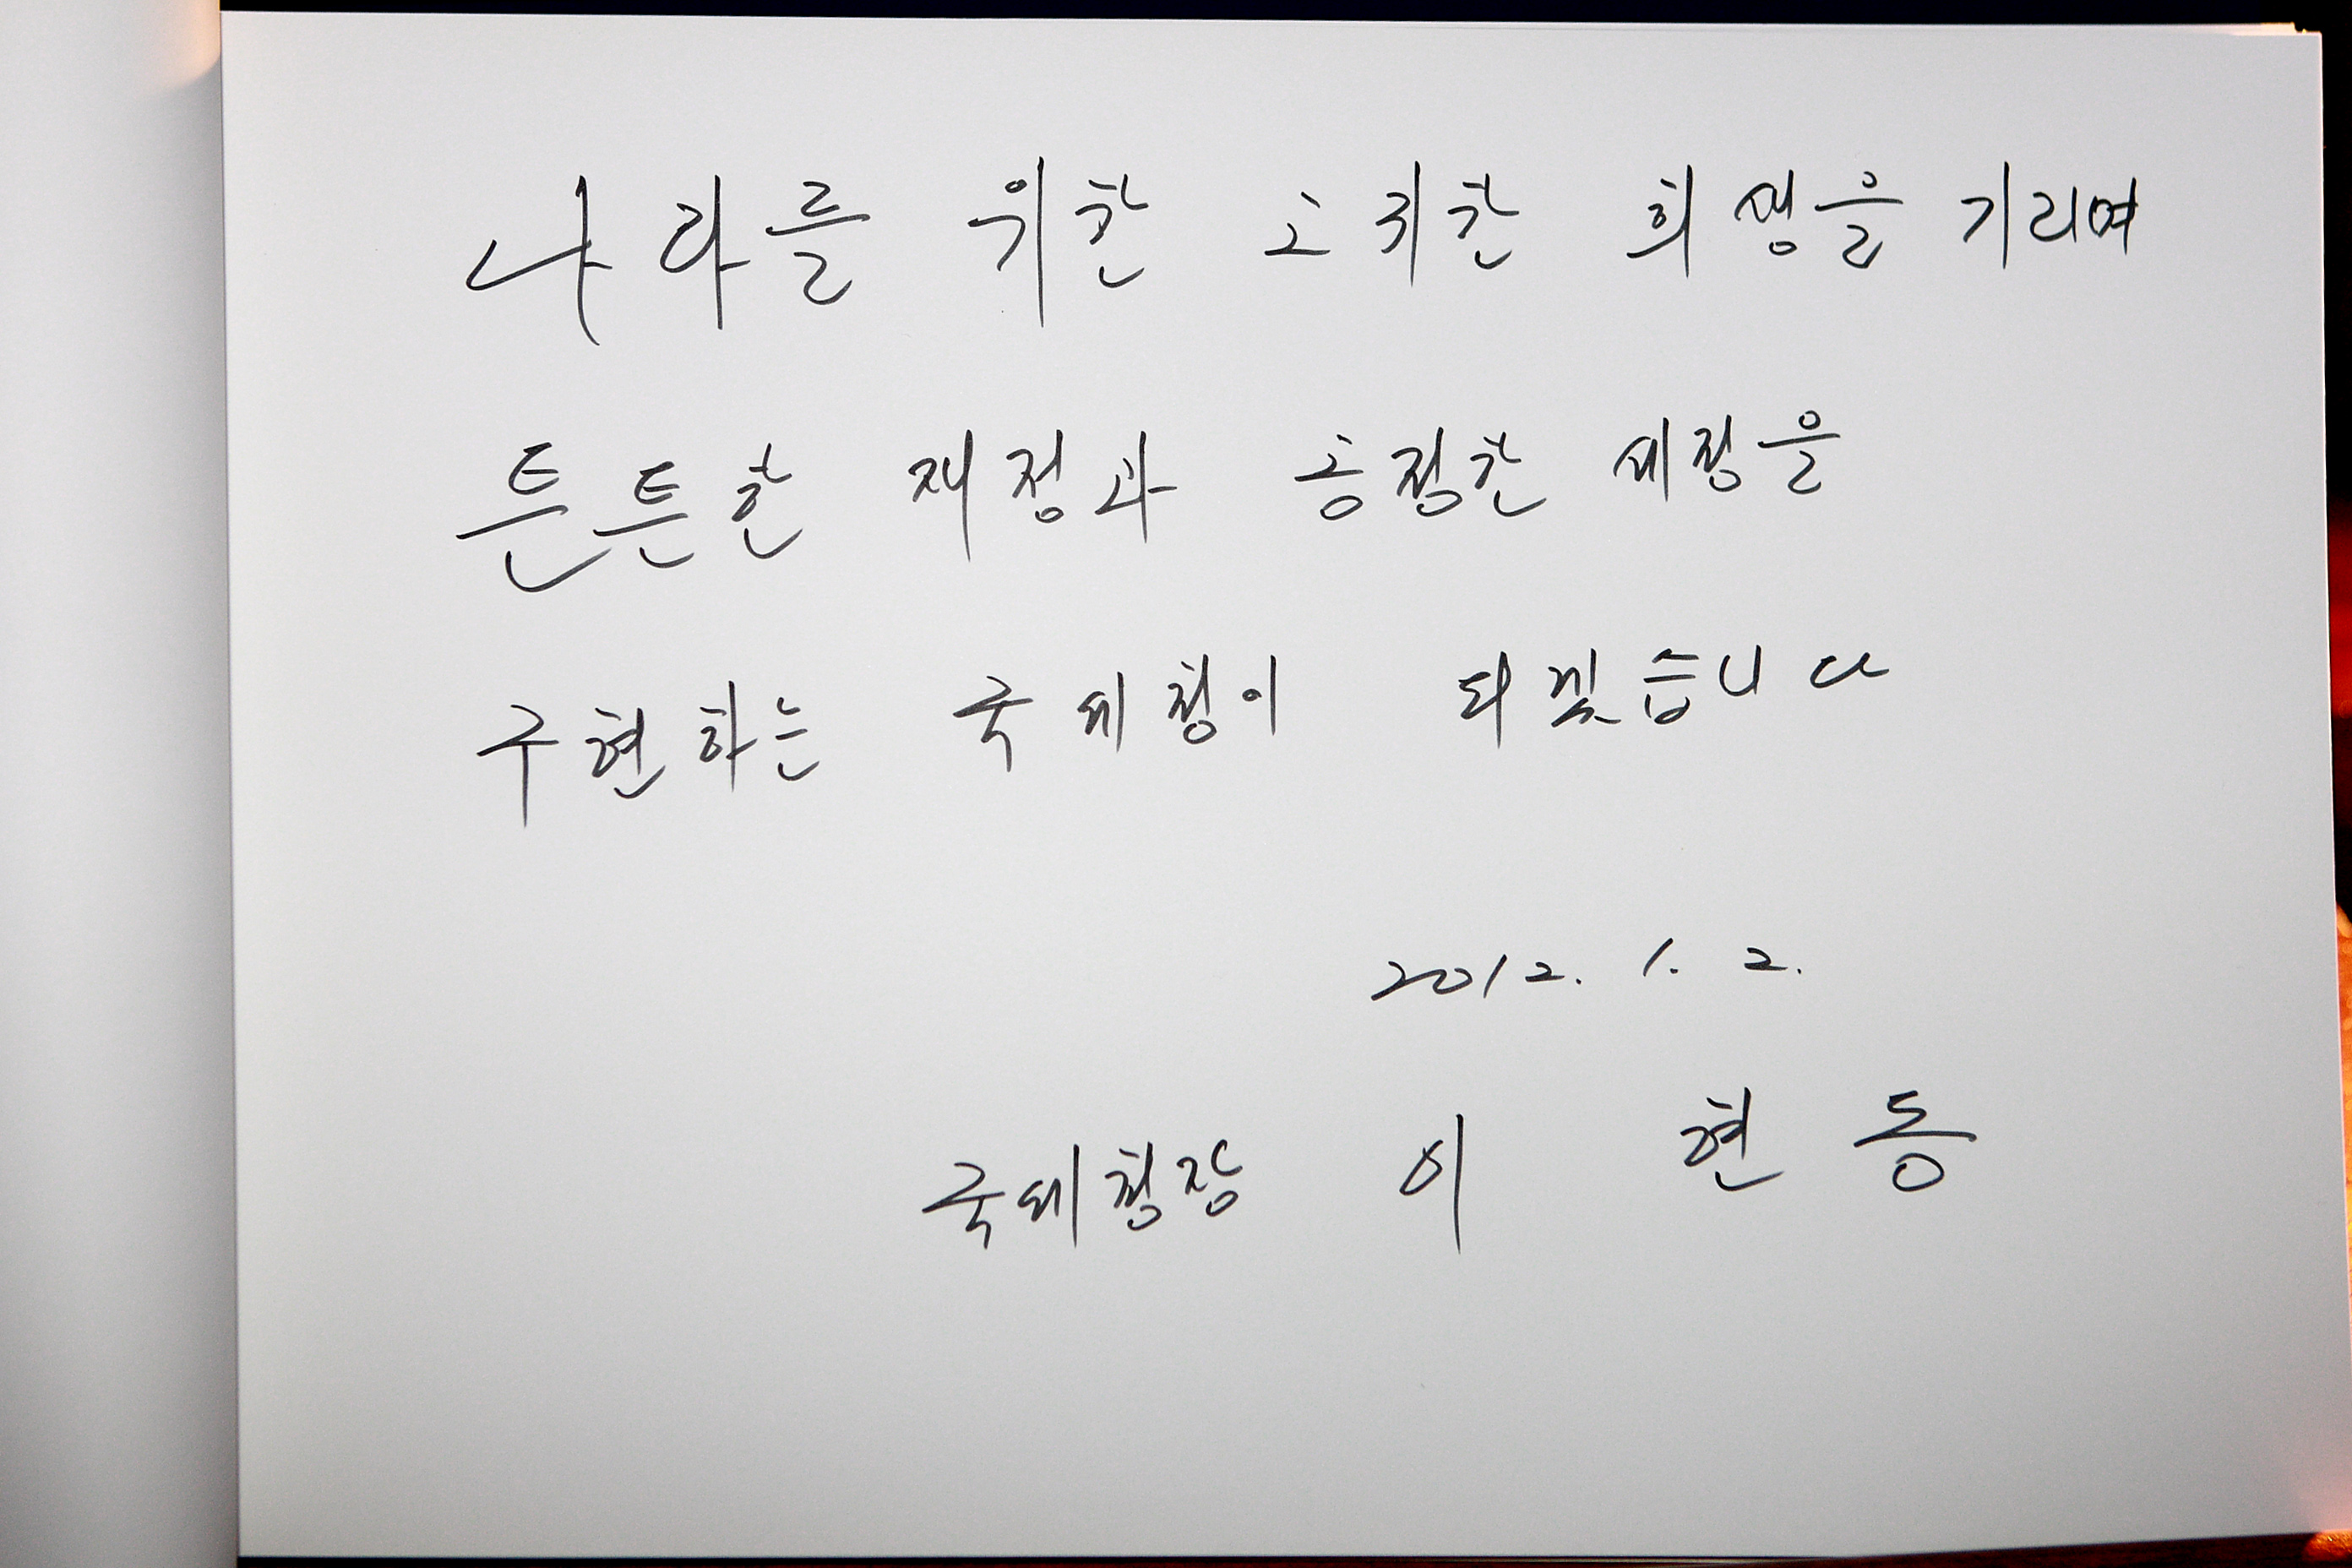 나라를 위한 고귀한 희생을 기리며
튼튼한 재정과 공정한 세정을
구현하는 국세청이 되겠습니다
2012. 1. 2.
국세청장 이 현 동